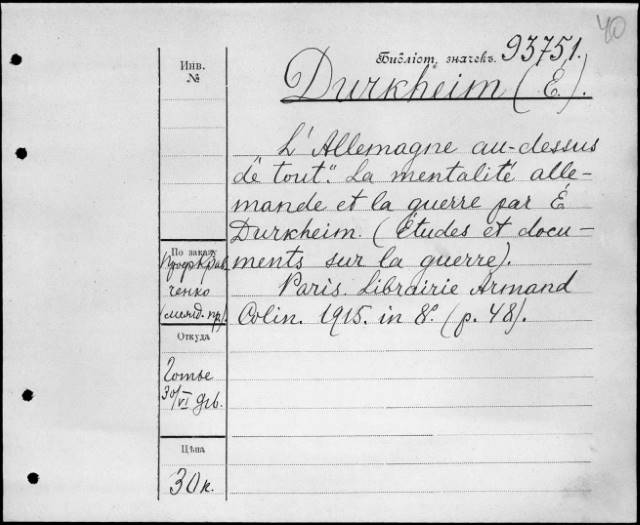 40
Библіот. значекъ. 93751.
Durkheim (É).
L'Allemagne au-dessus
de tout". La mentalité alle-
mande et la guerre par É
Durkheim. (Études et docu-
ments sur la guerre).
Paris. Librairie Armand
Colin. 1915. in 8º. (p. 48).
Инв.
№
По заказу
проф Крав
ченко
(межд. пр).
Откуда
Готье
30/VI
Цѣна
30 к.